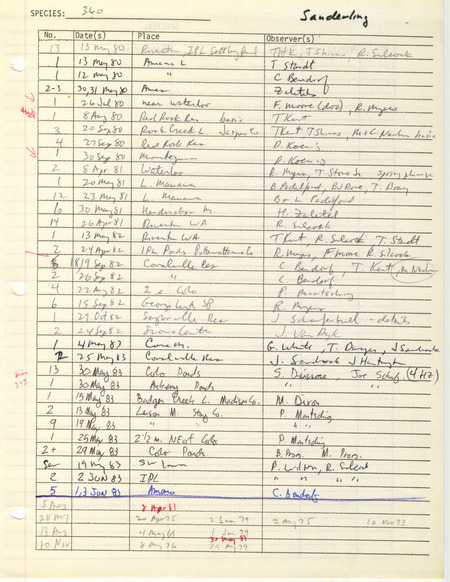 SPECIES: 360 Sanderling
No. Date(s) Place Observer(s)
13 13 May 80 Riverton, IPL Settling Pond THK, T Shires, R. Silcock
1 13 May 80 Amana L T Staudt
1 12 May 80 " C. Bendorf
2-3 30,31 May 80 Ames Zaletel
1 26 Jul 80 near Waterloo F. Moore (doc), R. Myers
1 8 Aug 80 Red Rock Res basic T Kent
3 20 Sep 80 Rock Creek L, Jasper Co T Kent T Shires, basic
4 27 Sep 80 Red Rock Res D. Koenig
1 30 Sep 80 D. Koenig
2 8 Apr 81 Waterloo R. Myers, T. Stone Jr spring plumage
1 20 May 81 L. Manawa B Padelford, BJ Rose, T. Bray
12 23 May 81 L. Manawa B + L Padelford
10 30 May 81 H. Zaletel
14 26 Apr 81 Riverton WA R. Silcock
1 13 May 82 Riverton WA T Kent, R. Silcock T. Staudt
2 24 Apr 82 IPL Ponds Pottawattamie Co R. Myers, F Moore R Silcock
19 Sep 82 Coralville Res C. Bendorf, T. Kent,
2 26 Sep 82 " C. Bendorf
4 22 Aug 82 2 e Colo P. Martsching
6 15 Sep 82 George Wyth SP R. Myers
1 29 Oct 82 Saylorville Res - details
2 24 Sep 82 Sioux Center J. Van Dyk
1 4 May 83 Cone M. G. White, T. Dwyer, J Sandrock
2 25 May 83 Coralville Res J. Sandrock J Huntington
13 30 May 83 Colo Ponds S. Dinsmore (4 HZ)
1 30 May 83 Ponds " "
1 15 May 83 Badger Creek L. Madison Co. M. Dixon
2 13 May 83 Larson M. Story Co. P. Martsching
9 19 May 83 " " "
1 25 May 83 2½ m. NE of Colo P. Martsching
2+ 29 May 83 Colo Ponds B. Proes. M. Proes.
19 May 83 SW Iowa B. Wilson, R. Silcock
2 2 Jun 83 IPL " " "
5 1,3 Jun 83 Amana C. Bendorf
8 Apr 81
28 May 20 Apr 75 2 Jun 79 2 Aug 75 10 Nov 73
13 Aug 4 May 64 1 Jun 79
30 May 81
10 Nov 8 May 76 29 May 79